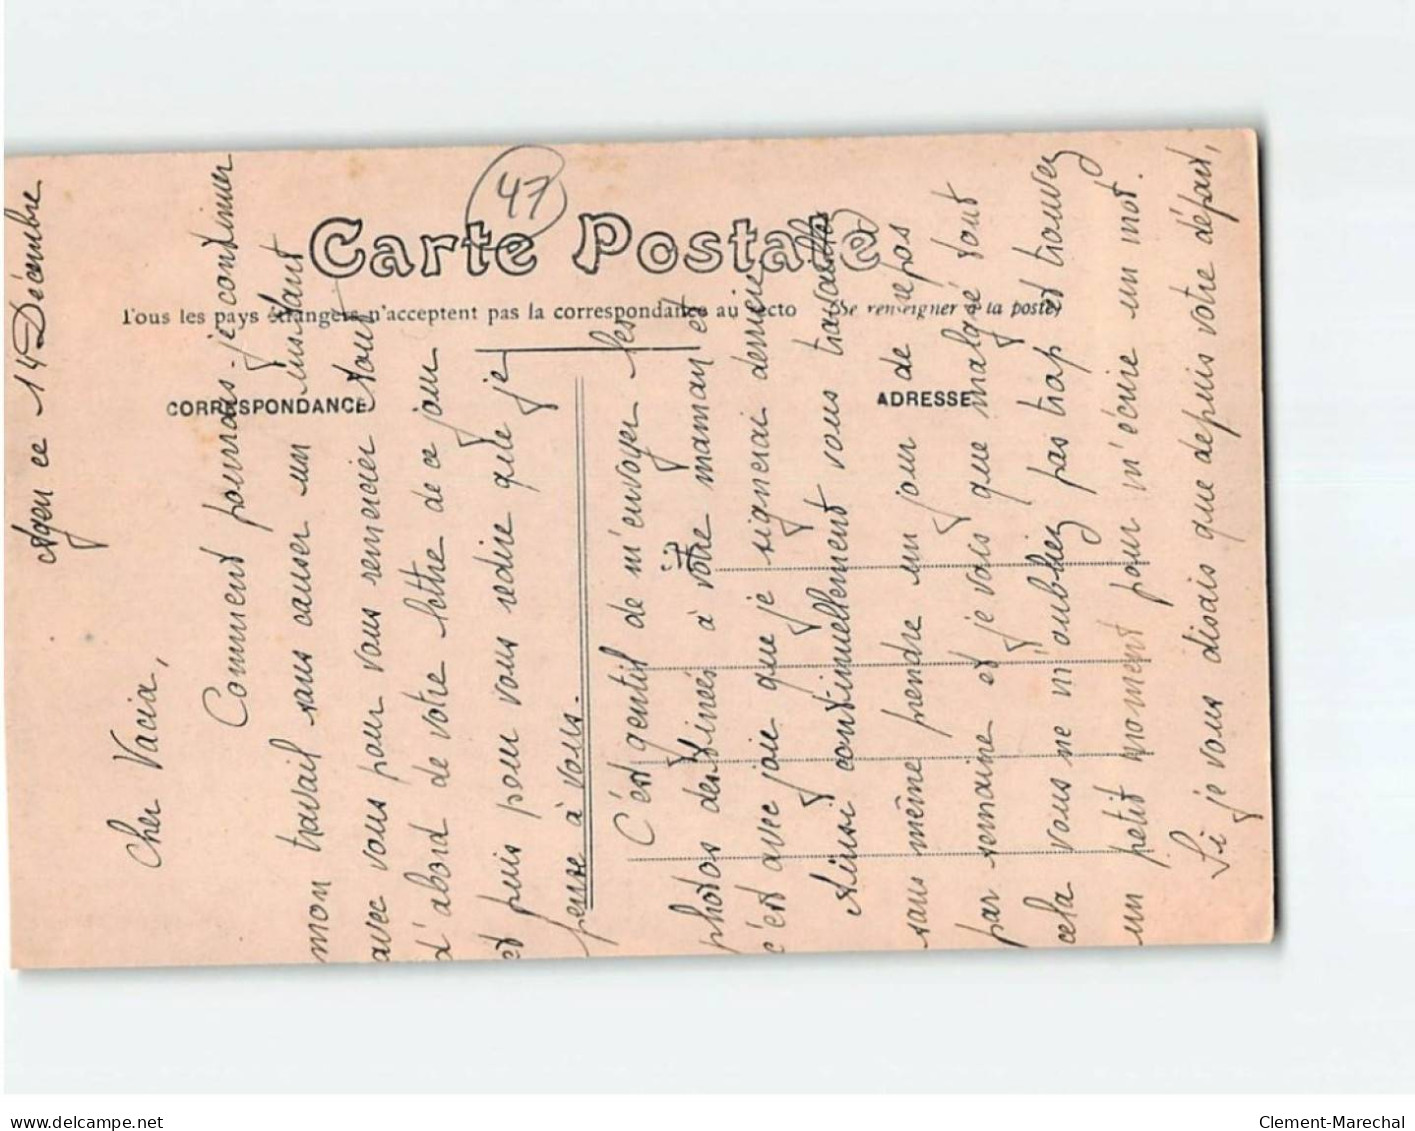 Agen ce 14 Décembre
Cher Vacia,
Comment pourrais-je continuer
mon travail sans causer un instant
avec vous pour vous remercier tout
d'abord de votre lettre de ce jour
et puis pour vous redire que je
pense à vous.
C'est gentil de m'envoyer les
photos destinées à votre maman et
c'est avec joie que je signerai derrière
Ainsi continuellement vous travaillez
sans même prendre un jour de repos
par semaine et je vois que malgré tout
cela vous ne m'oubliez pas trop et trouvez
un petit moment pour m'écrire un mot.
Si je vous disais que depuis votre départ,
47
Carte Postale
Tous les pays étrangers n'acceptent pas la correspondance au recto (Se renseigner à la poste)
CORRESPONDANCE
ADRESSE
www.delcampe.net
Clement-Marechal